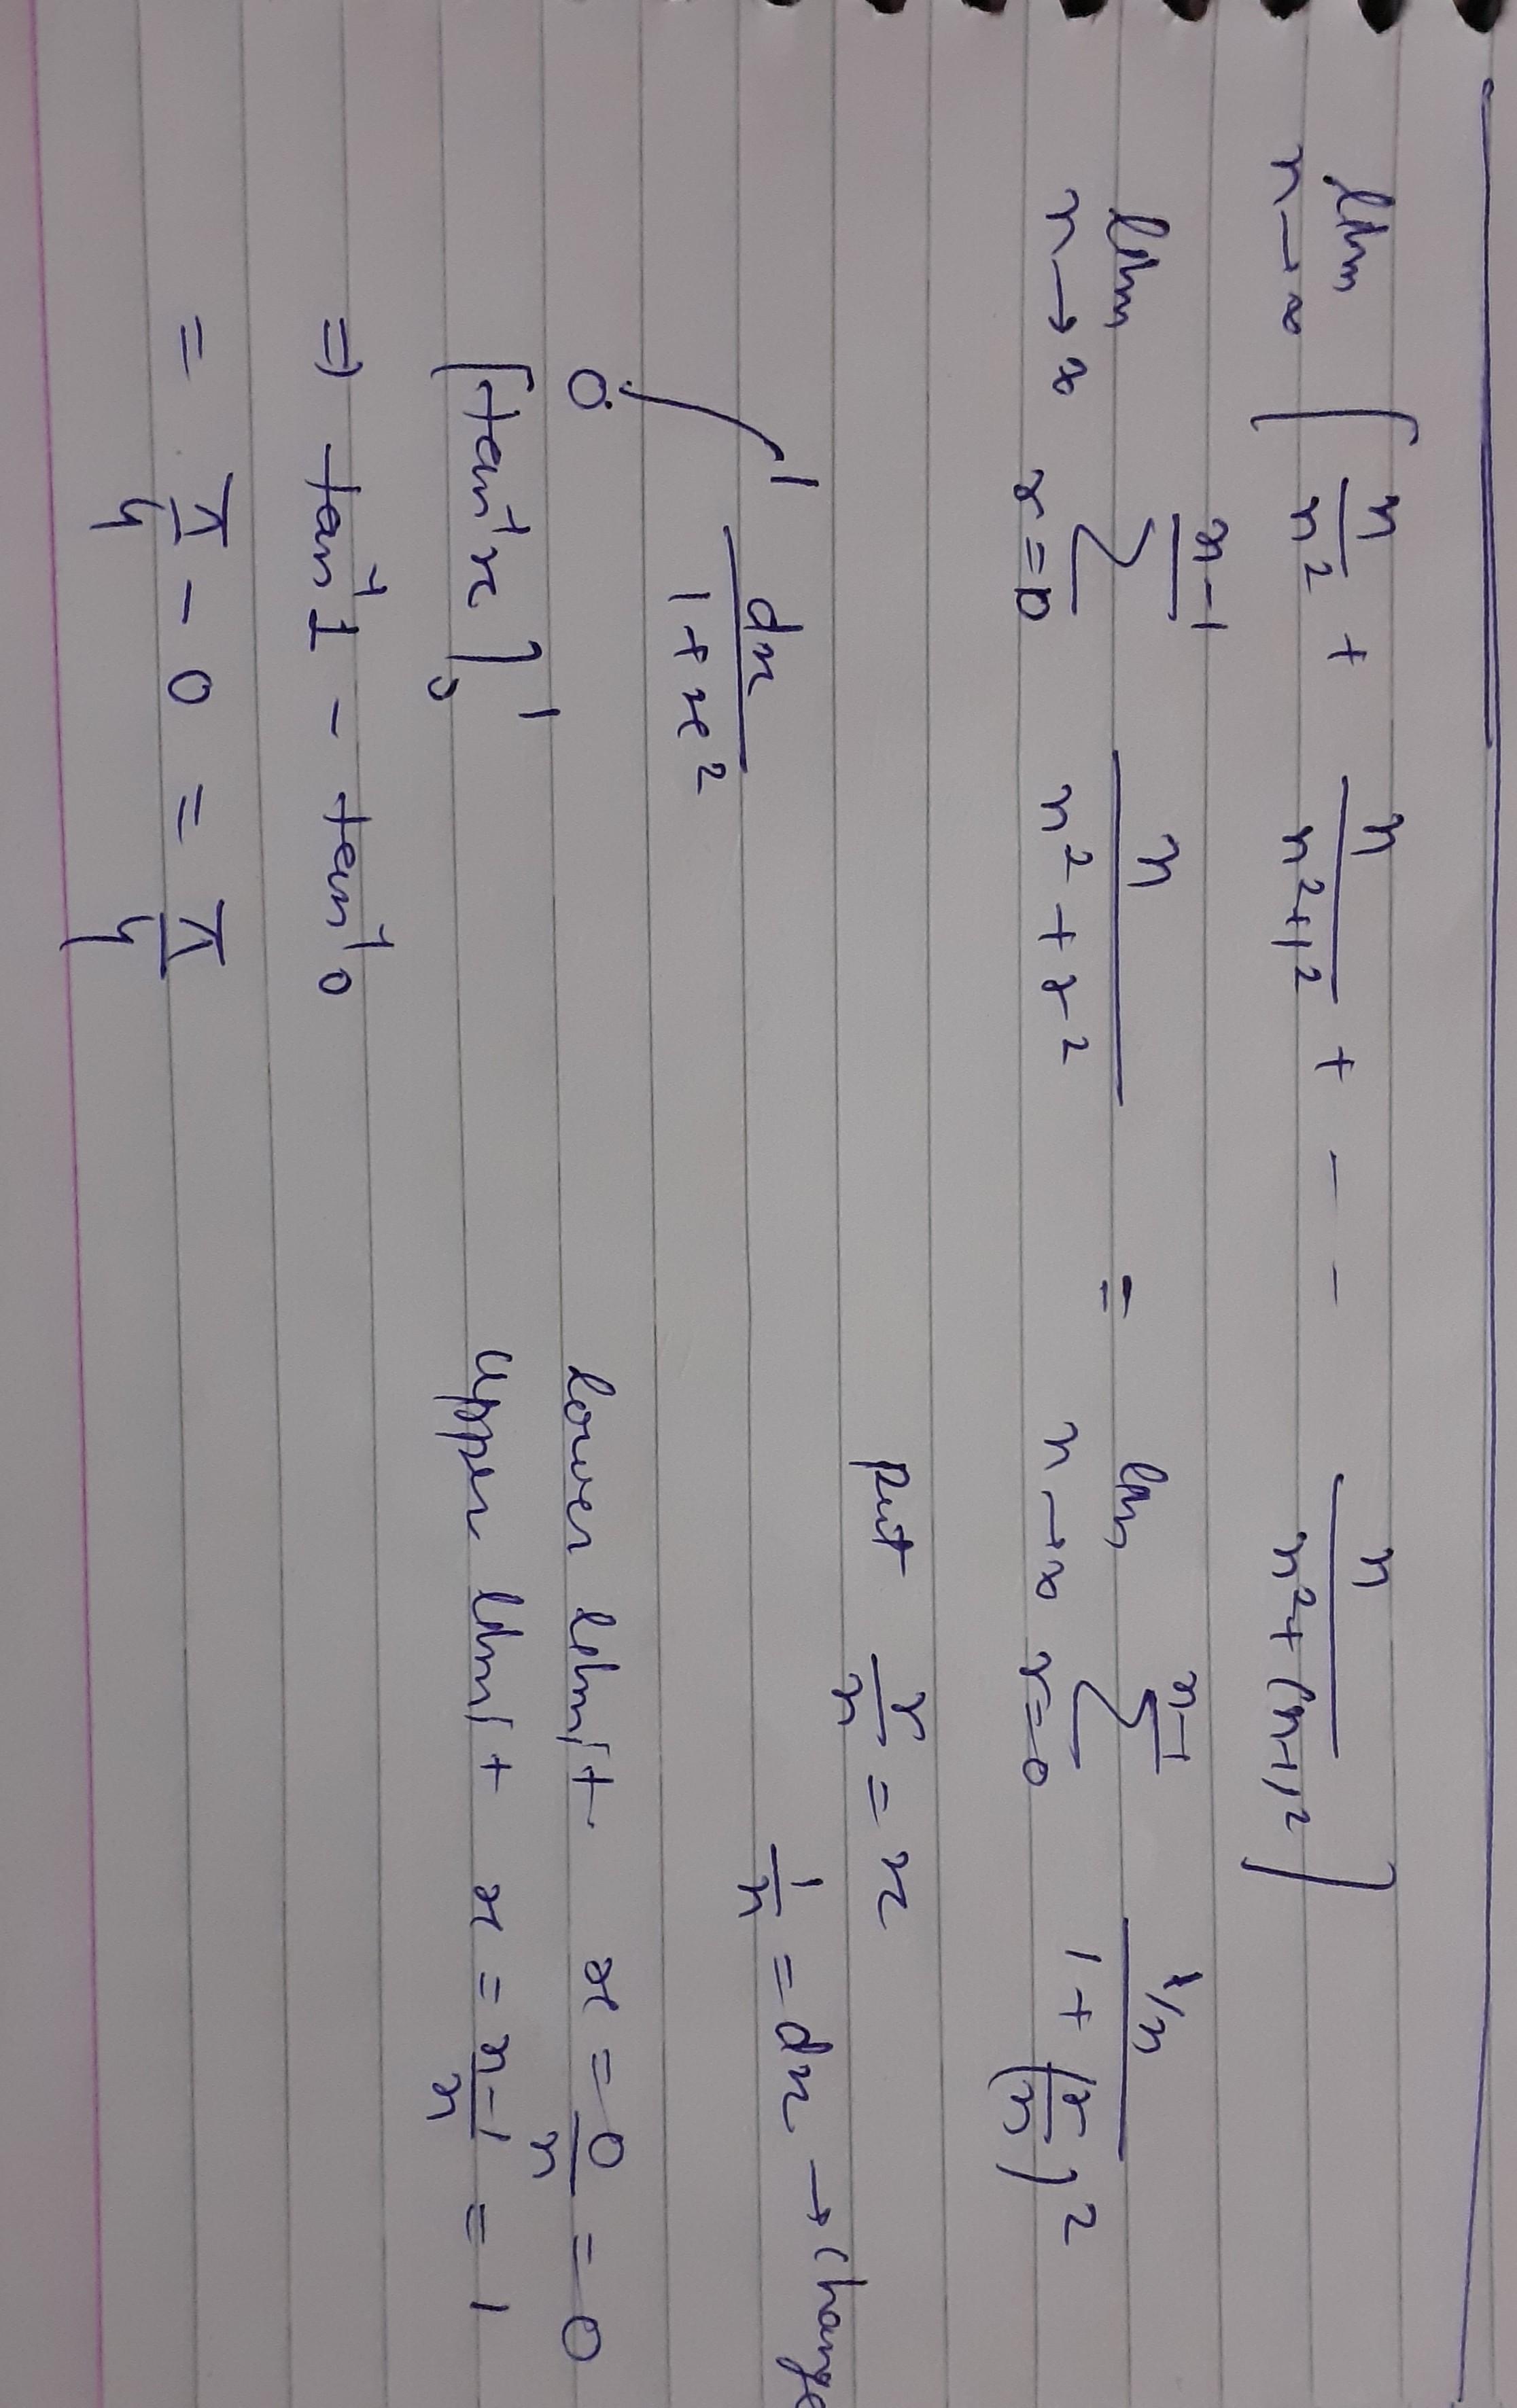 lim n→∞ [ n/n² + n/n²+1² + - - n/n²+(n-1)² ]
lim n→∞ Σ r=0 n-1 n/n²+r² = lim n→∞ Σ r=0 n-1 1/n / 1+(r/n)²
put r/n = x
1/n = dx → change
0∫1 dx/1+x²
lower limit x = 0/n = 0
[tan⁻¹x]₀¹ upper limit x = n-1/n = 1
⇒ tan⁻¹1 - tan⁻¹0
= π/4 - 0 = π/4